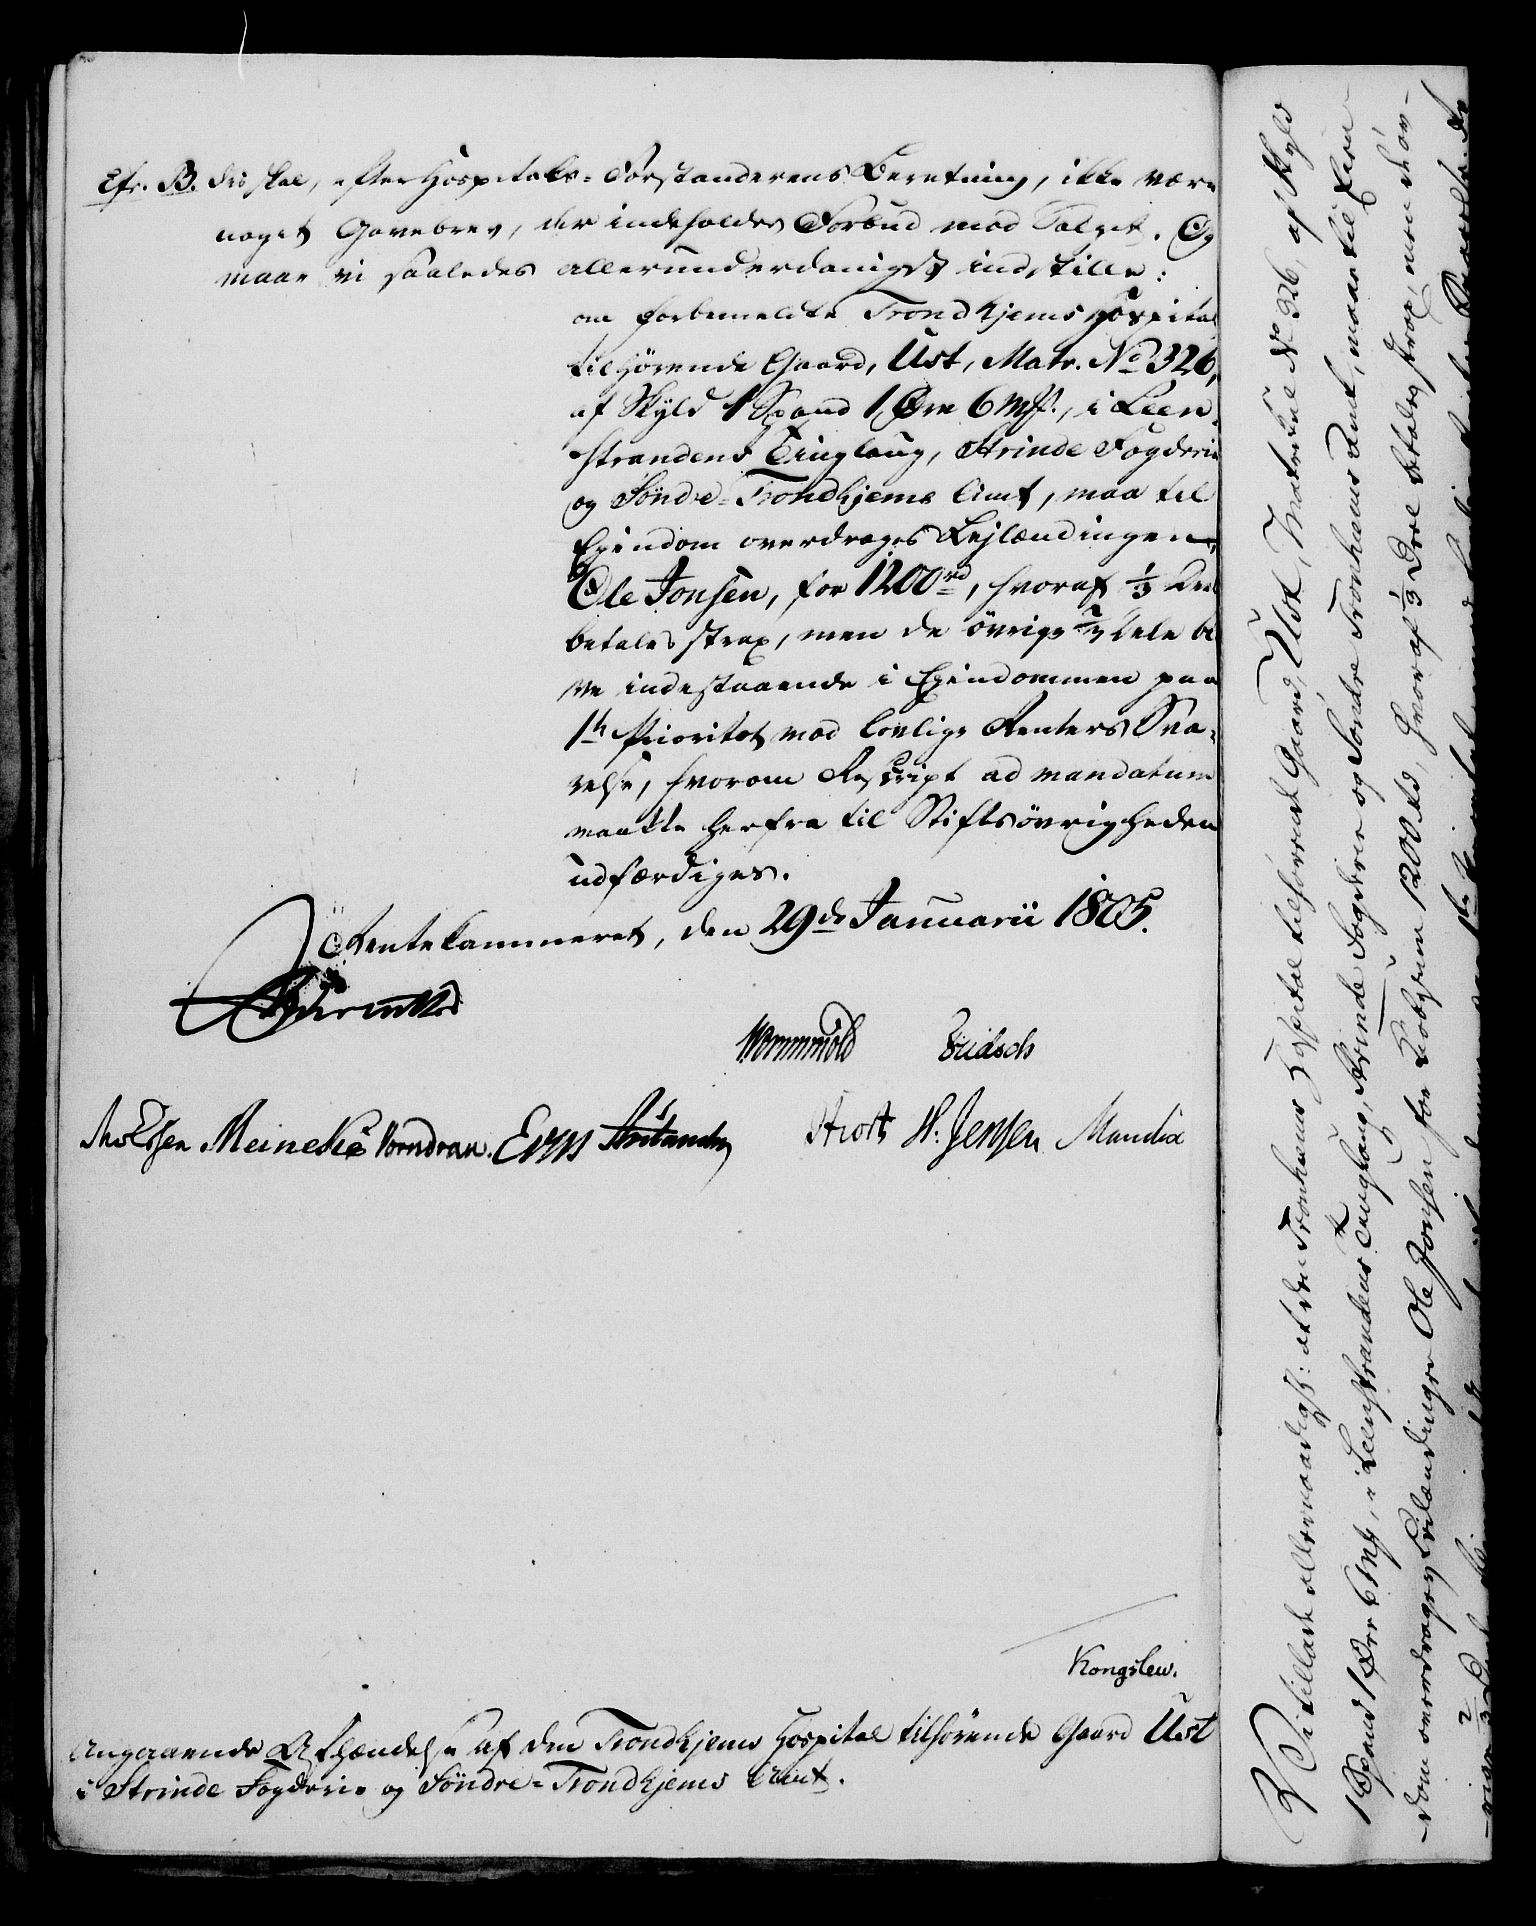 Efr. B. Der skal, efter Hospitals-Forstanderens Beretning, ikke være
noget Gavebrev, der indeholder Forbud mod Salget. Og
maae vi saaledes allerunderdanigst indstille:
om forbemeldte Trondhjems Hospital
tilhørende Gaard, Ust, Matr. No 326,
af Skyld 1 Spand 1 Øre 6 mkl., i Leen-
strandens Tinglaug, Strinde Fogderie
og Søndre-Trondhjems Amt, maa til
Ejendom overdrages Lejlændingen,
Ole Jonsen, for 1200 rd, hvoraf 1/3 Deel
betales strax, men de øvrige 2/3 Dele bli
ve indestaaende i Ejendommen paa
1te Prioritet mod lovlige Renters Sva-
relse, hvorom Rescript ad mandatum
maatte herfra til Stiftsøvrigheden
udfærdiges.
Rentekammeret, den 29de Januarii 1805.
Wormskiold
Meineke Vorndran.
H: Jensen Mandix
Kongslew.
Angaaende Afhændelse af den Trondhjems Hospital tilhørende Gaard Ust
i Strinde Fogderie og Søndre-Trondhjems Amt.
Vi tillade allernaadigst: at den Tronhiems Hospital tilhørende Gaard, Ust, Matrikul No 326, af Skyld
1 Spand 1 Øre 6 mkl, i Leenstrandens Tinglaug, Strinde Fogderie og Søndre Tronhiems Amt, maae til Eien-
dom overdrages Leilændingen Ole Jonsen for Kiøbesum 1200 rd, hvoraf 1/3 Deel betales strax, men de øv-
rige 2/3 Dele